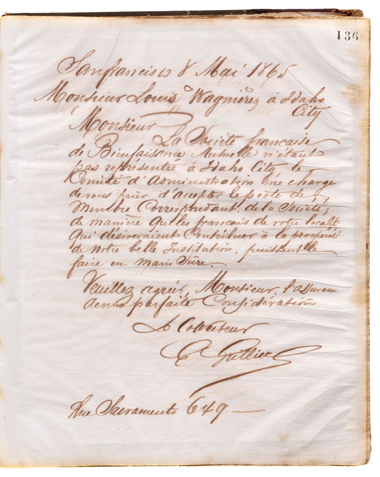 136
Sanfrancisco 8 Mai 1865
Monsieur Louis Wagnière à Idaho
City
Monsieur
La Société française
de Bienfaisance Mutuelle n'étant
pas représentée à Idaho City, le
Comité d'Administration me charge
de vous prier d'accepter le poste de
Membre Correspondant de la Société
de manière que les français de votre localité
qui désireraient Contribuer à la prospérité
de notre belle Institution, puissent le
faire en main sûre.
Veuillez agréer, Monsieur, l'assurance
de ma parfaite Considération
Le Collecteur
Rue Sacramento 649